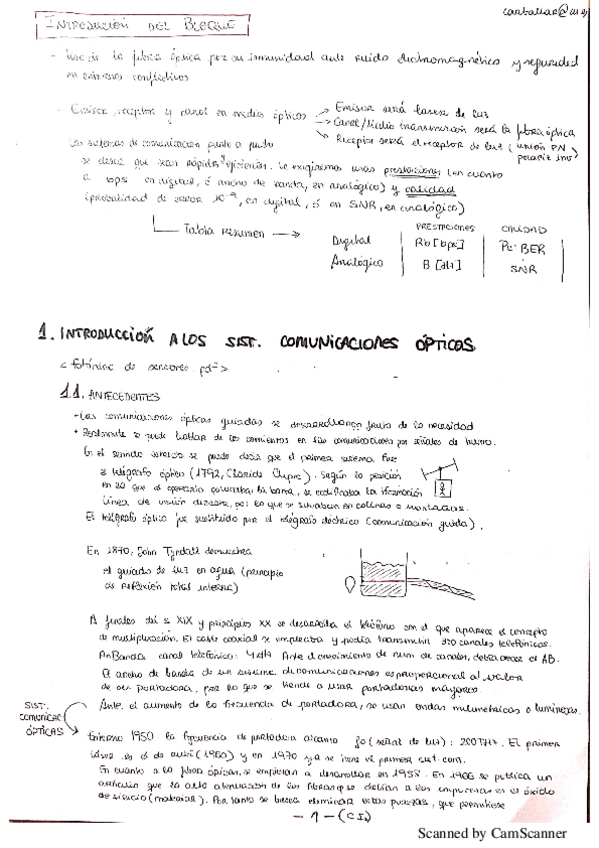 INTRODUCCIÓN DEL BLOQUE
- Uso de la fibra óptica por su inmunidad ante ruido electromagnético y seguridad
en entornos conflictivos
- Emisor, receptor y canal en medios ópticos → Emisor será láseres de luz
→ Canal/Medio transmisión será la fibra óptica
→ Receptor será el receptor de luz (unión PN
Los sistemas de comunicación punto a punto
se desea que sean rápidos y eficientes. Le exigiremos unas prestaciones (en cuanto
a bps en digital, ó ancho de banda, en analógico) y calidad
(probabilidad de error 10⁻⁹, en digital, ó en SNR, en analógico)
Tabla resumen →
PRESTACIONES CALIDAD
Digital Rb [bps] Pe-BER
Analógico B [Hz] SNR
1. INTRODUCCIÓN A LOS SIST. COMUNICACIONES ÓPTICAS
<fotónica de sensores pdf>
1.1. ANTECEDENTES
- Las comunicaciones ópticas guiadas se desarrollaron fruto de la necesidad
se puede hablar de los comienzos en las comunicaciones por señales de humo.
En el sentido se puede decir que el primer sistema fue
el telégrafo óptico (1792, Claude Chappe). Según la posición
en la que el operario colocaba la barra, se codificaba la información
Línea de visión directa, por lo que se situaban en colinas o montañas.
El telégrafo óptico fue sustituido por el telégrafo eléctrico (comunicación guiada).
En 1870, John Tyndall demuestra
el guiado de luz en agua (principio
de reflexión total interna)
A finales del s. XIX y principios XX se desarrolla el teléfono con el que aparece el concepto
de multiplexación. El cable coaxial se empleaba y podía transmitir canales telefónicos.
canal telefónico: 4kHz Ante el crecimiento de num de canales, debe crecer el AB.
El ancho de banda de un sistema de comunicaciones es proporcional al valor
de su portadora, por lo que se tiende a usar portadoras mayores.
Ante el aumento de la frecuencia de portadora, se usan ondas milimétricas o luminosas.
SIST.
COMUNICAC
ÓPTICAS
Entorno 1950 la frecuencia de portadora alcanza f0 (señal de luz): 200THz. El primer
láser es el de rubí (1960) y en 1970 ya se tiene el primer sist com.
En cuanto a la fibra óptica, se empiezan a desarrollar en 1958. En 1966 se publica un
artículo que la alta atenuación de las fibras se debían a las impurezas en el óxido
de silicio (material). Por tanto se busca eliminar estas purezas, que permitiese
- 1 - (CS)
Scanned by CamScanner